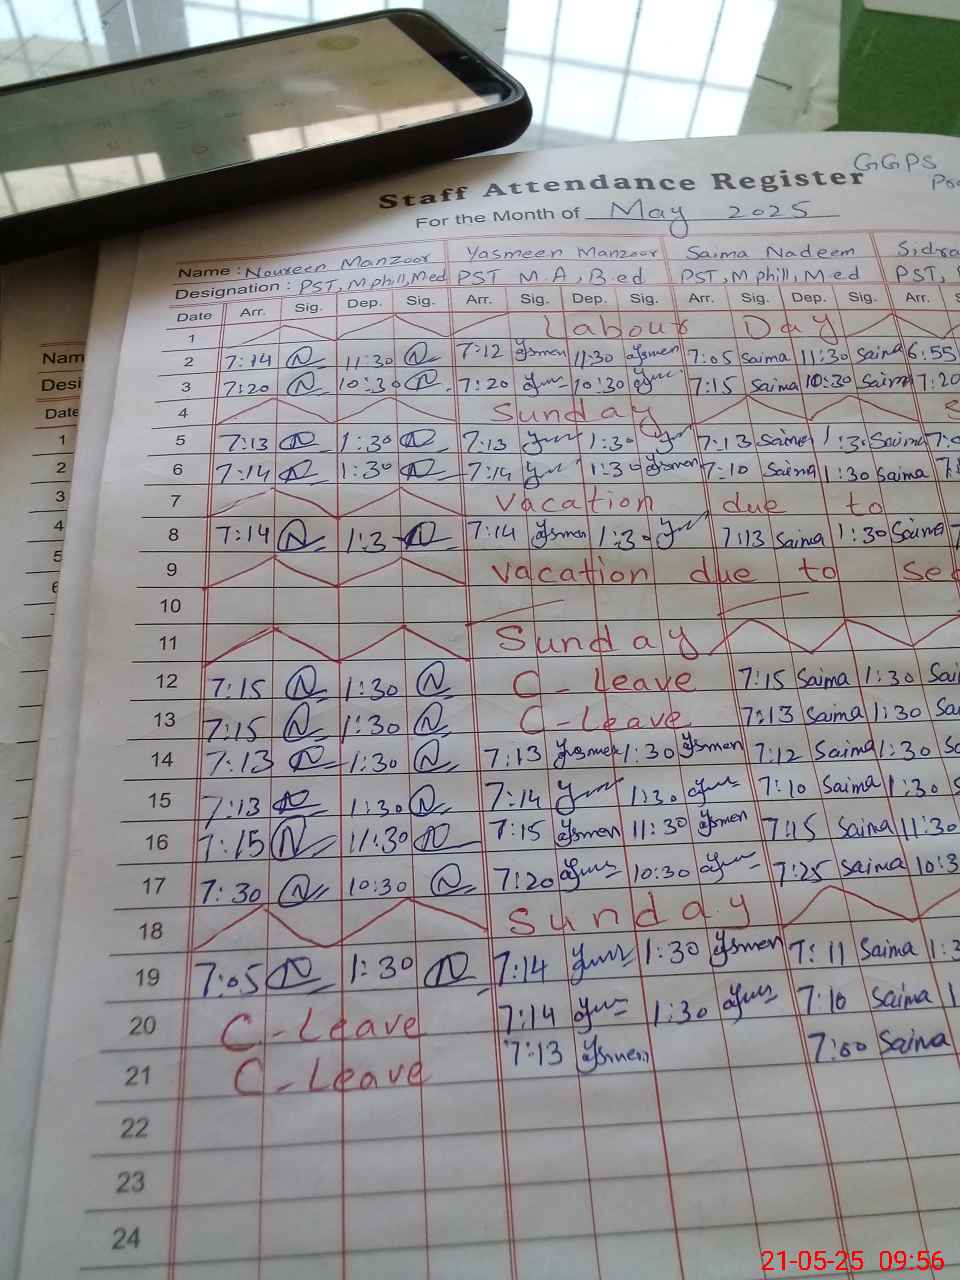 GGPS
Staff Attendance Register
For the Month of May 2025
Name : Noureen Manzoor Yasmeen Manzoor Saima Nadeem Sidra
Designation : PST, M phill, M.ed PST M.A, B.ed PST, M phill, M.ed PST,
Date Arr. Sig. Dep. Sig. Arr. Sig. Dep. Sig. Arr. Sig. Dep. Sig. Arr.
1 Labour Day
2 7:14 N 11:30 N 7:12 Ysmen 11:30 Ysmen 7:05 Saima 11:30 Saima 6:55
3 7:20 N 10:30 N 7:20 10:30 7:15 Saima 10:30 Saima 7:20
4 Sunday
5 7:13 N 1:30 N 7:13 1:30 7:13 Saima 1:30 Saima
6 7:14 N 1:30 N 7:14 1:30 Ysmen 7:10 Saima 1:30 Saima
7 Vacation due to
8 7:14 N 1:3 N 7:14 Ysmen 1:30 7:13 Saima 1:30 Saima
9 Vacation due to
10
11 Sunday
12 7:15 N 1:30 N C-Leave 7:15 Saima 1:30 Sai
13 7:15 N 1:30 N C-Leave 7:13 Saima 1:30 Sa
14 7:13 N 1:30 N 7:13 Ysmen 1:30 Ysmen 7:12 Saima 1:30 Sa
15 7:13 N 1:30 N 7:14 1:30 7:10 Saima 1:30 S
16 7:15 N 11:30 N 7:15 Ysmen 11:30 Ysmen 7:15 Saima 11:30
17 7:30 N 10:30 N 7:20 10:30 7:25 Saima 10:3
18 Sunday
19 7:05 N 1:30 N 7:14 1:30 Ysmen 7:11 Saima 1:3
20 C-Leave 7:14 1:30 7:10 Saima 1
21 C-Leave 7:13 Ysmen 7:00 Saima
22
23
24
Nam
Desi
Date
1
2
3
4
5
6
21-05-25 09:56